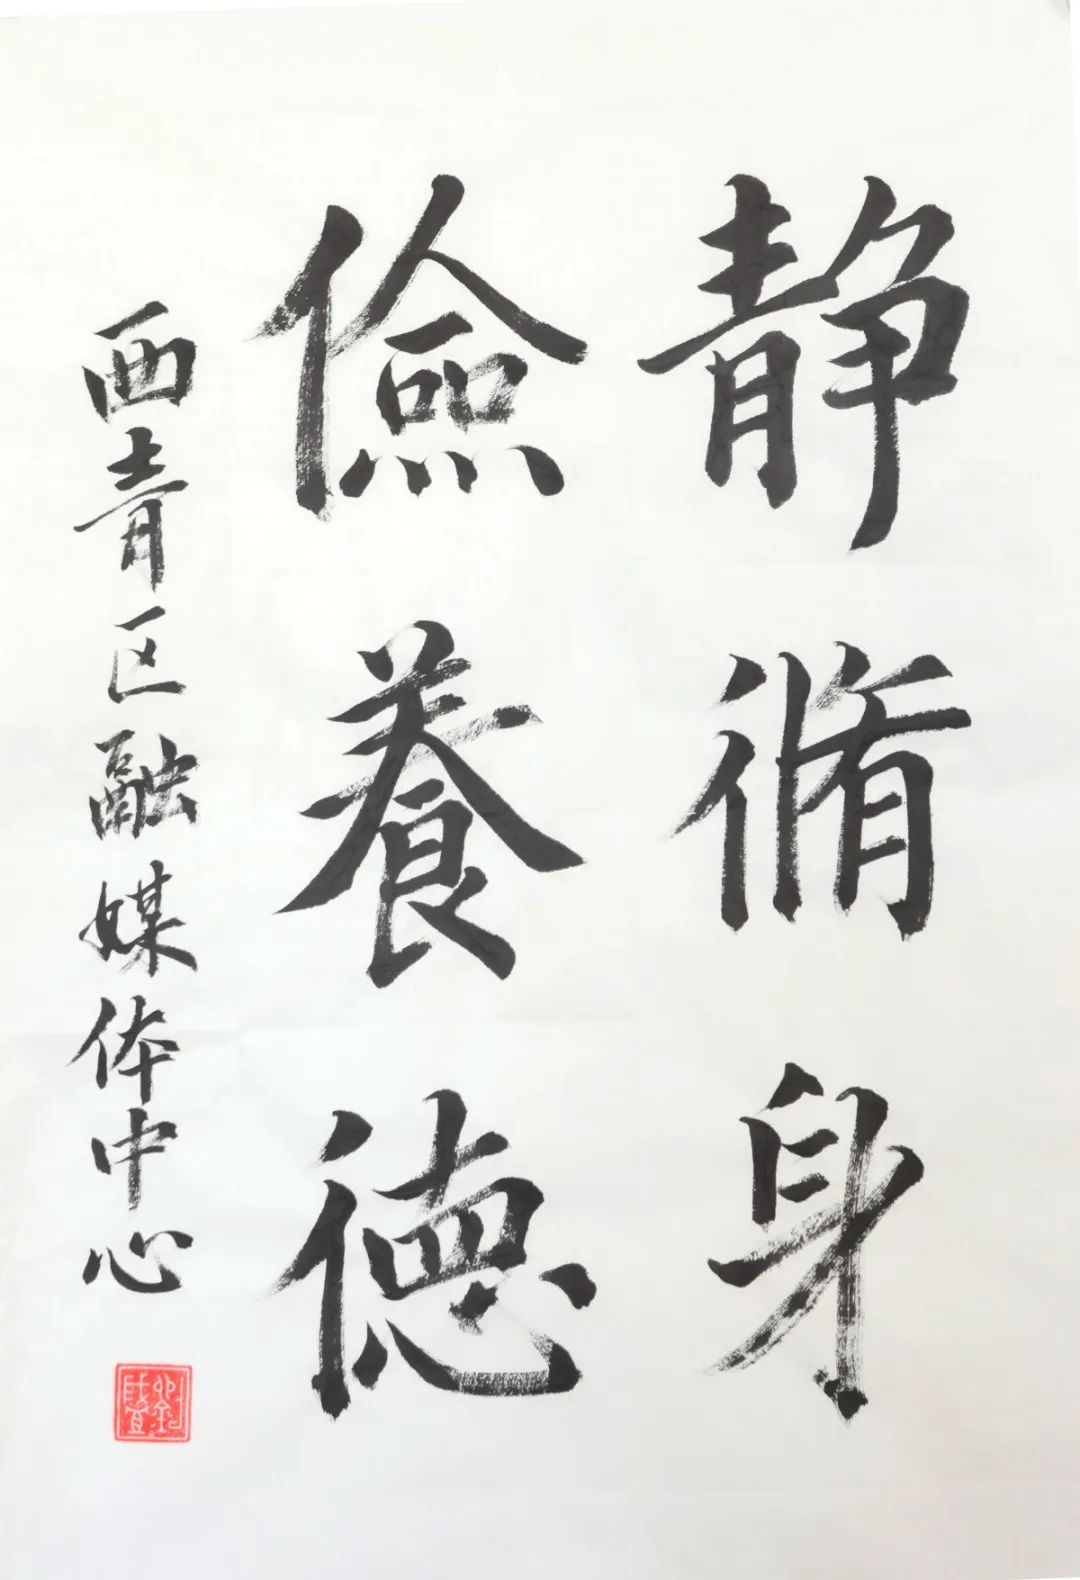 静脩身
儉養德
西青区融媒体中心